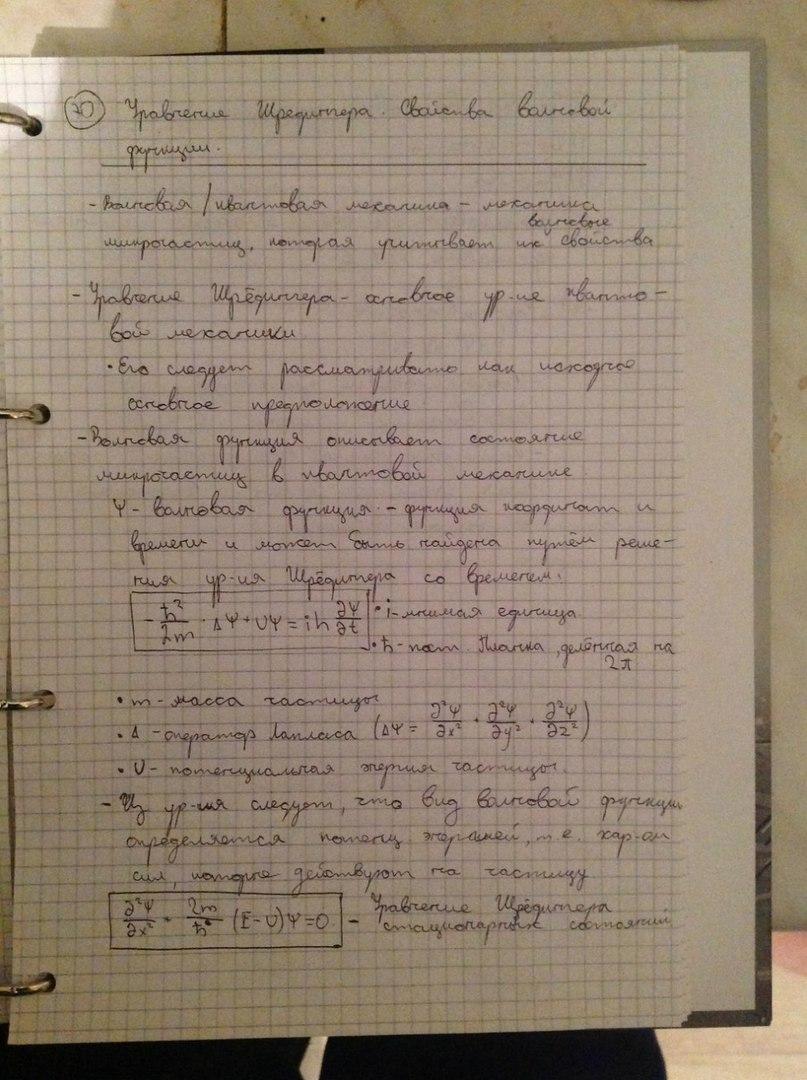 20 Уравнение Шредингера. Свойства волновой
функции.
- Волновая / квантовая механика - механика
волновые
микрочастиц, которая учитывает их свойства
- Уравнение Шрёдингера - основное ур-ие кванто-
вой механики
• Его следует рассматривать как исходное
основное предположение
- Волновая функция описывает состояние
микрочастиц в квантовой механике
Ψ - волновая функция - функция координат и
времени и может быть найдена путём реше-
ния ур-ия Шрёдингера со временем:
-ħ²/2m · ΔΨ + UΨ = iħ ∂Ψ/∂t • i - мнимая единица
• ħ - пост. Планка, делённая на
2π
• m - масса частицы
• Δ - оператор Лапласа (ΔΨ = ∂²Ψ/∂x² + ∂²Ψ/∂y² + ∂²Ψ/∂z²)
• U - потенциальная энергия частицы.
- Из ур-ия следует, что вид волновой функции
определяется потенц. энергией, т.е. хар-ом
сил, которые действуют на частицу
∂²Ψ/∂x² + 2m/ħ² (E-U)Ψ=0 - Уравнение Шрёдингера
стационарных состояний